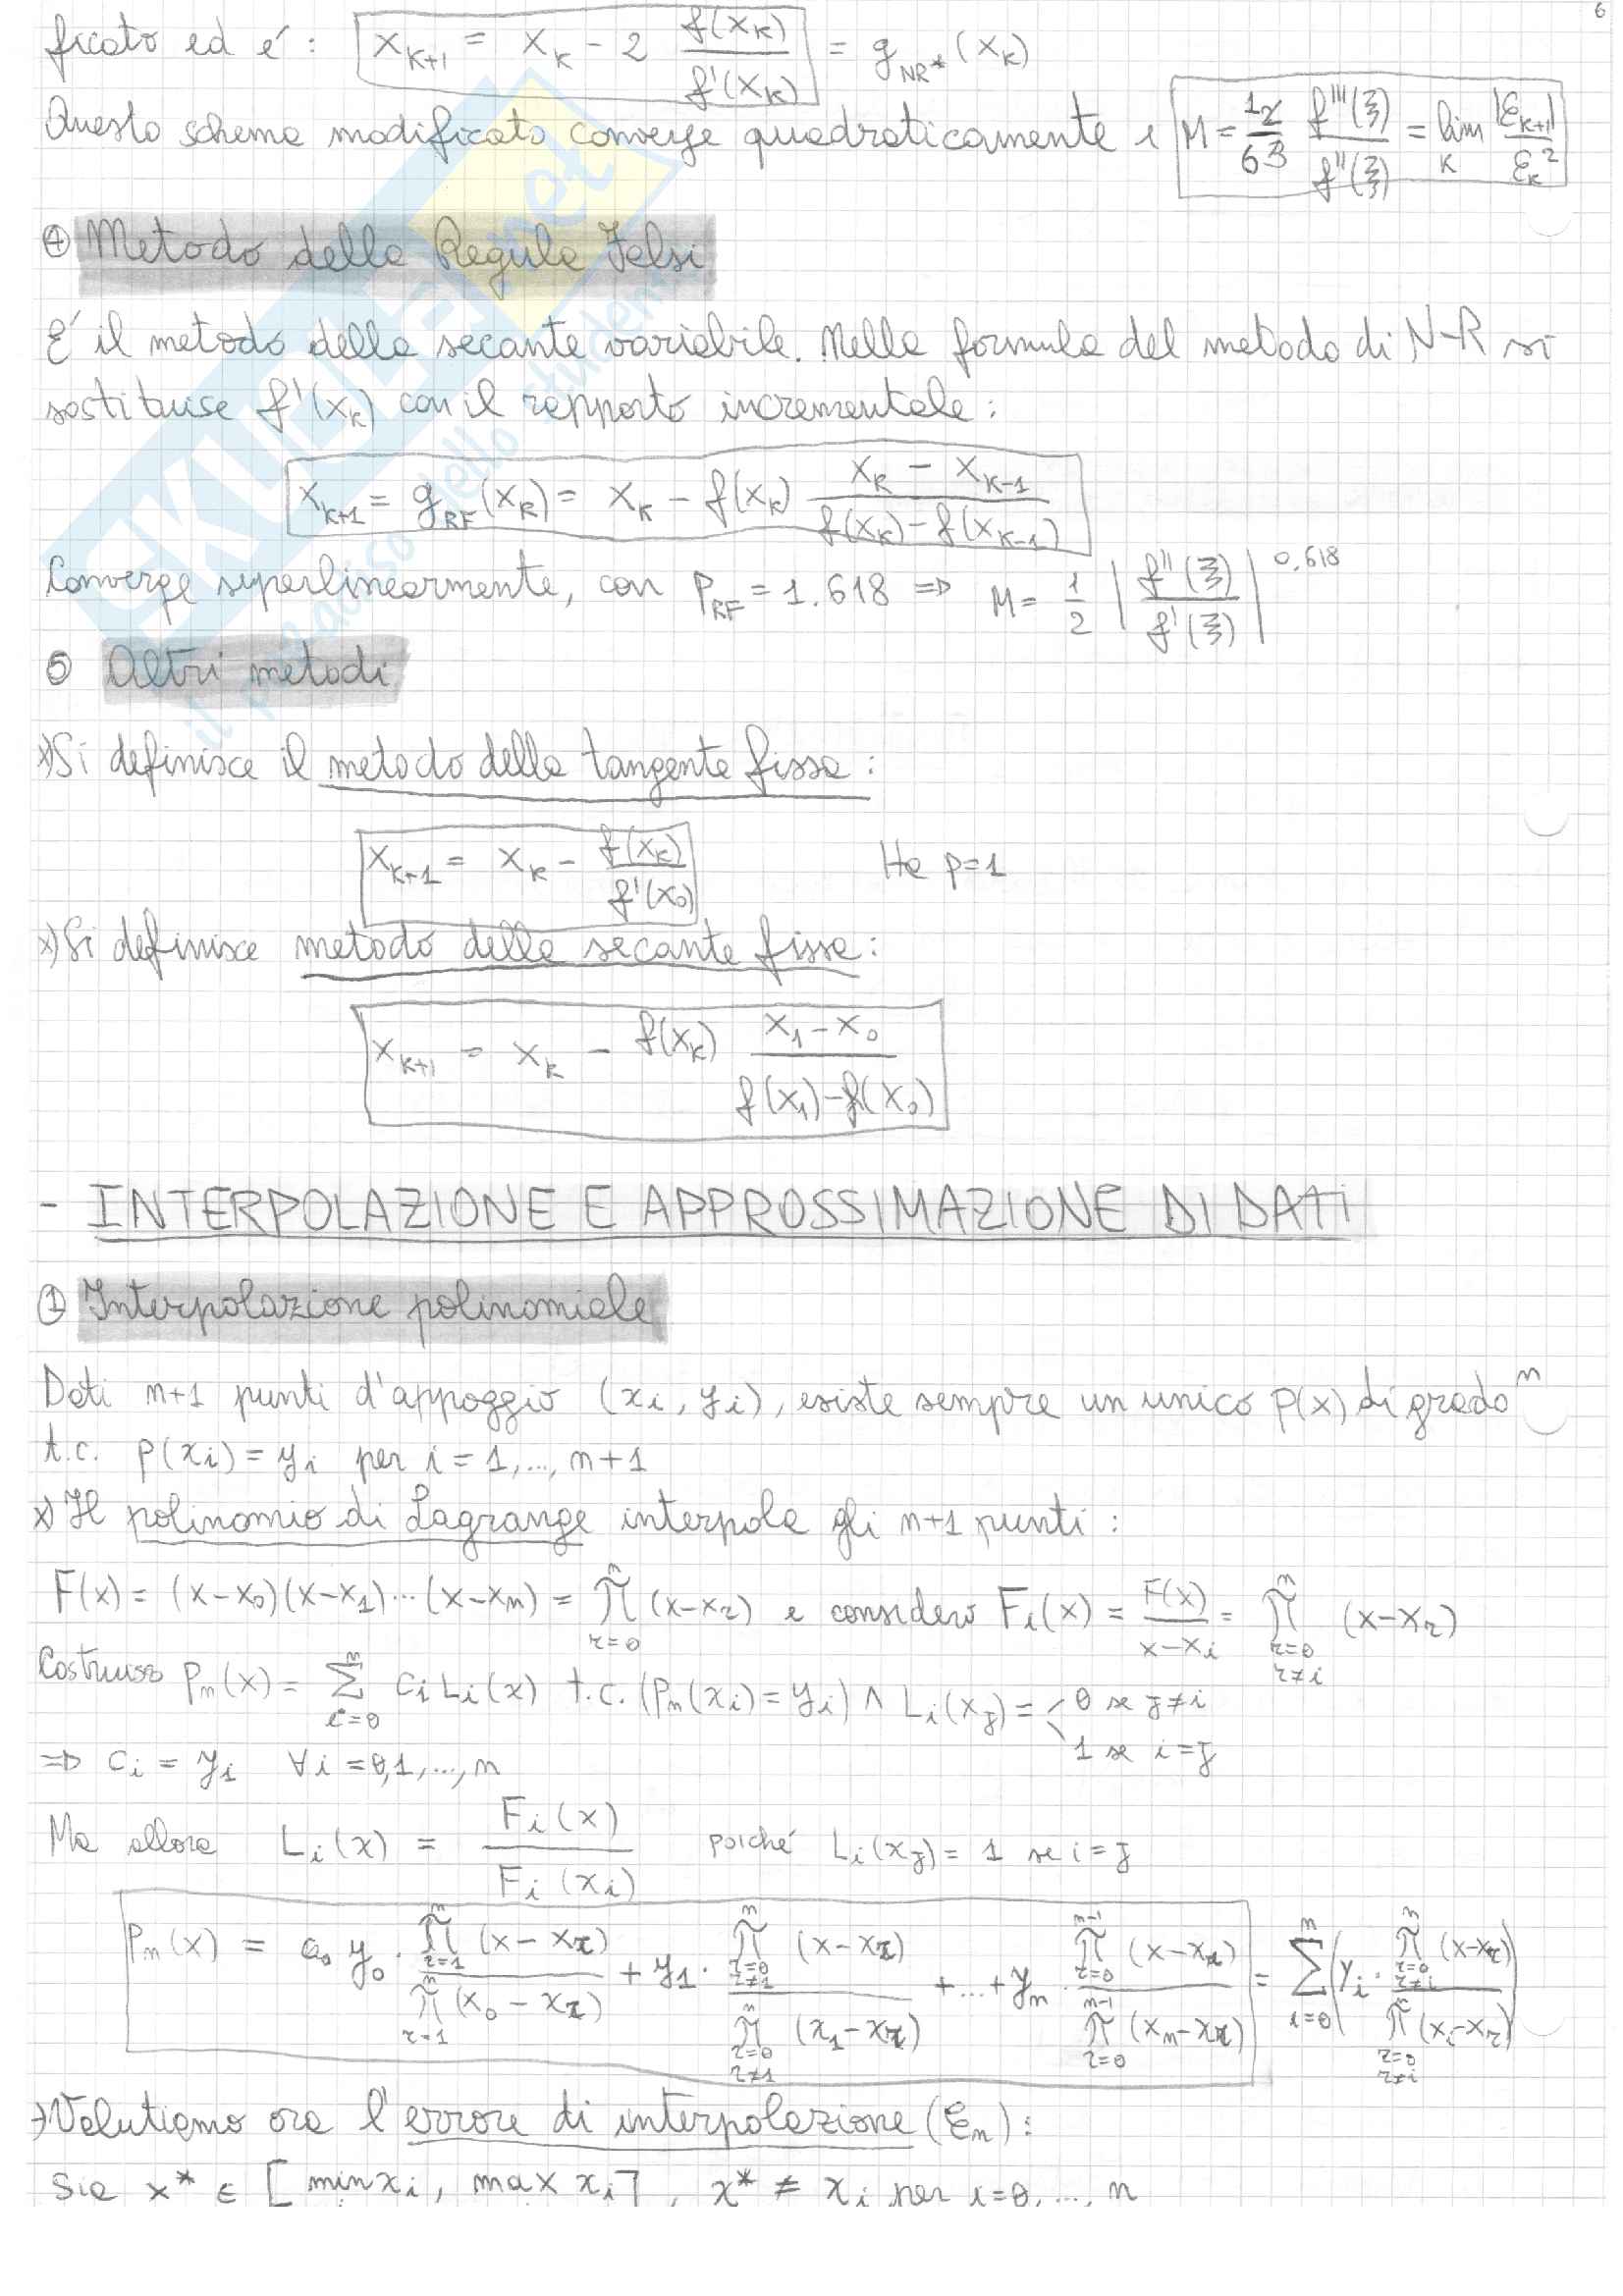 6
ficato ed é : x_{k+1} = x_k - 2 f(x_k)/f'(x_k) = g_{NR*}(x_k)
Questo schema modificato converge quadraticamente e M = 1/6 f'''(ξ)/f''(ξ) = lim_k |ε_{k+1}|/ε_k^2
④ Metodo della Regula Falsi
E' il metodo della secante variabile. Nella formula del metodo di N-R si
sostituisce f'(x_k) con il rapporto incrementale :
x_{k+1} = g_{RF}(x_k) = x_k - f(x_k) (x_k - x_{k-1})/(f(x_k) - f(x_{k-1}))
Converge superlinearmente, con P_{RF} = 1.618 => M = 1/2 |f''(ξ)/f'(ξ)|^{0,618}
⑤ Altri metodi
x) Si definisce il metodo della tangente fissa :
x_{k+1} = x_k - f(x_k)/f'(x_0) Ha p=1
x) Si definisce metodo della secante fissa :
x_{k+1} = x_k - f(x_k) (x_1 - x_0)/(f(x_1) - f(x_0))
- INTERPOLAZIONE E APPROSSIMAZIONE DI DATI
① Interpolazione polinomiale
Dati n+1 punti d'appoggio (x_i, y_i), esiste sempre un unico p(x) di grado n
t.c. p(x_i) = y_i per i = 1,..., n+1
x) Il polinomio di Lagrange interpola gli n+1 punti :
F(x) = (x-x_0)(x-x_1)...(x-x_n) = ∏_{r=0}^{n} (x-x_r) e considero F_i(x) = F(x)/(x-x_i) = ∏_{r=0, r≠i}^{n} (x-x_r)
Costruisco P_n(x) = ∑_{i=0}^{n} c_i L_i(x) t.c. (P_n(x_i) = y_i) ∧ L_i(x_j) = { 0 se j≠i
1 se i=j
=> c_i = y_i ∀i = 0,1,...,n
Ma allora L_i(x) = F_i(x)/F_i(x_i) poiché L_i(x_j) = 1 se i=j
P_n(x) = y_0 · ∏_{r=1}^{n} (x-x_r)/∏_{r=1}^{n} (x_0-x_r) + y_1 · ∏_{r=0, r≠1}^{n} (x-x_r)/∏_{r=0, r≠1}^{n} (x_1-x_r) + ... + y_n · ∏_{r=0}^{n-1} (x-x_r)/∏_{r=0}^{n-1} (x_n-x_r) = ∑_{i=0}^{n} (y_i · ∏_{r=0, r≠i}^{n} (x-x_r)/∏_{r=0, r≠i}^{n} (x_i-x_r))
→) Valutiamo ora l'errore di interpolazione (ε_n) :
Sia x* ∈ [min x_i, max x_i], x* ≠ x_i per i=0,...,n
SKUOLA.net
il paradiso dello studente